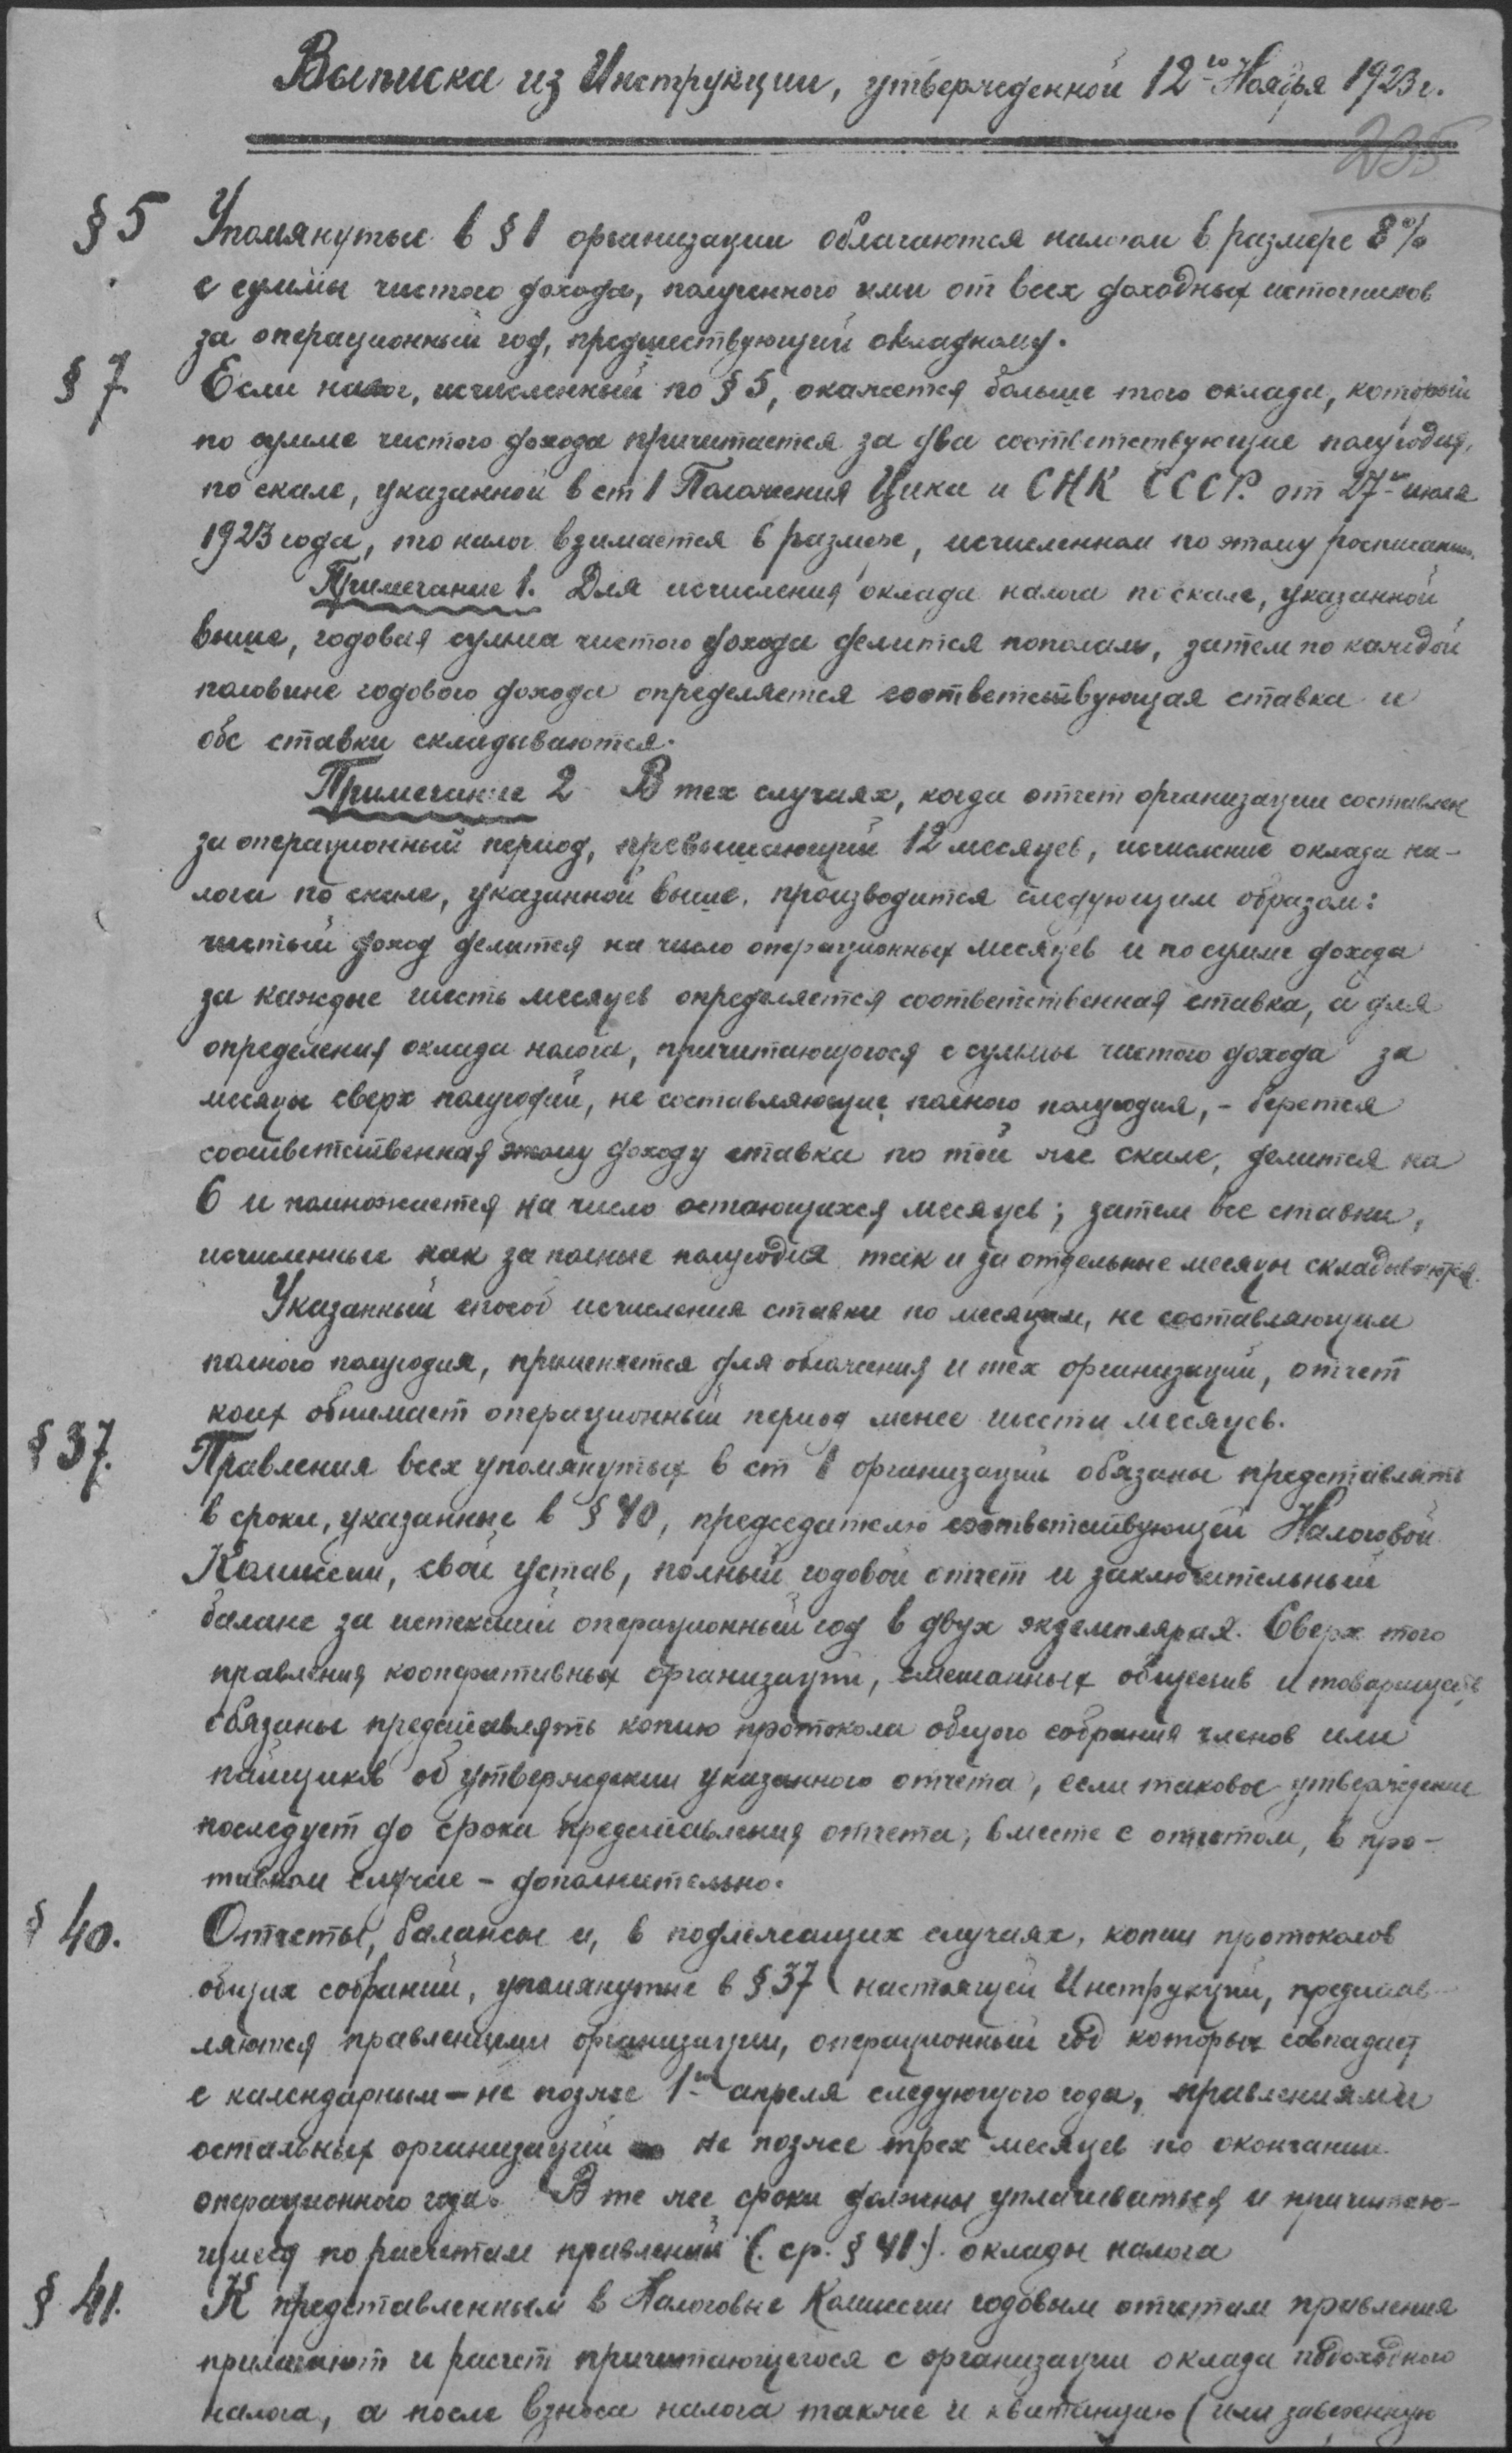 Выписка из Инструкции, утвержденной 12го Ноября 1923 г.
235
§ 5 Упомянутые в § 1 организации облагаются налогом в размере 8%
с суммы чистого дохода, полученного ими от всех доходных источников
за операционный год, предшествующий окладному.
§ 7 Если налог, исчисленный по § 5, окажется больше того оклада, который
по сумме чистого дохода причитается за два соответствующие полугодия,
по скале, указанной в ст 1 Положения Цика и СНК СССР. от 27го июля
1923 года, то налог взимается в размере, исчисленном по этому росписанию.
Примечание 1. Для исчисления оклада налога по скале, указанной
выше, годовая сумма чистого дохода делится пополам, затем по каждой
половине годового дохода определяется соответствующая ставка и
обе ставки складываются.
Примечание 2 В тех случаях, когда отчет организации составлен
за операционный период, превышающий 12 месяцев, исчисление оклада на-
лога по скале, указанной выше, производится следующим образом:
чистый доход делится на число операционных месяцев и по сумме дохода
за каждые шесть месяцев определяется соответственная ставка, а для
определения оклада налога, причитающегося с суммы чистого дохода за
месяцы сверх полугодий, не составляющие полного полугодия, - берется
соответственная этому доходу ставка по той же скале, делится на
6 и помножается на число остающихся месяцев; затем все ставки,
исчисленные как за полные полугодия так и за отдельные месяцы складываются.
Указанный способ исчисления ставки по месяцам, не составляющим
полного полугодия, применяется для обложения и тех организаций, отчет
коих обнимает операционный период менее шести месяцев.
§ 37. Правления всех упомянутых в ст 1 организаций обязаны представлять
в сроки, указанные в § 40, председателю соответствующей Налоговой
Комиссии, свой устав, полный годовой отчет и заключительный
баланс за истекший операционный год в двух экземплярах. Сверх того
правления кооперативных организаций, смешанных обществ и товариществ
обязаны представлять копию протокола общего собрания членов или
пайщиков об утверждении указанного отчета, если таковое утверждение
последует до срока представления отчета, вместе с отчетом, в про-
тивном случае - дополнительно.
§ 40. Отчеты, балансы и, в подлежащих случаях, копии протоколов
общих собраний, упомянутые в § 37 настоящей Инструкции, представ-
ляются правлениями организации, операционный год которых совпадает
с календарным - не позже 1го апреля следующего года, правлениями
остальных организаций не позже трех месяцев по окончании
операционного года. В те же сроки должны уплачиваться и причитаю-
щиеся по расчетам правлений (ср. § 41). оклады налога
§ 41. К представленным в Налоговые Комиссии годовым отчетам правления
прилагают и расчет причитающегося с организации оклада подоходного
налога, а после взноса налога также и квитанцию (или заверенную